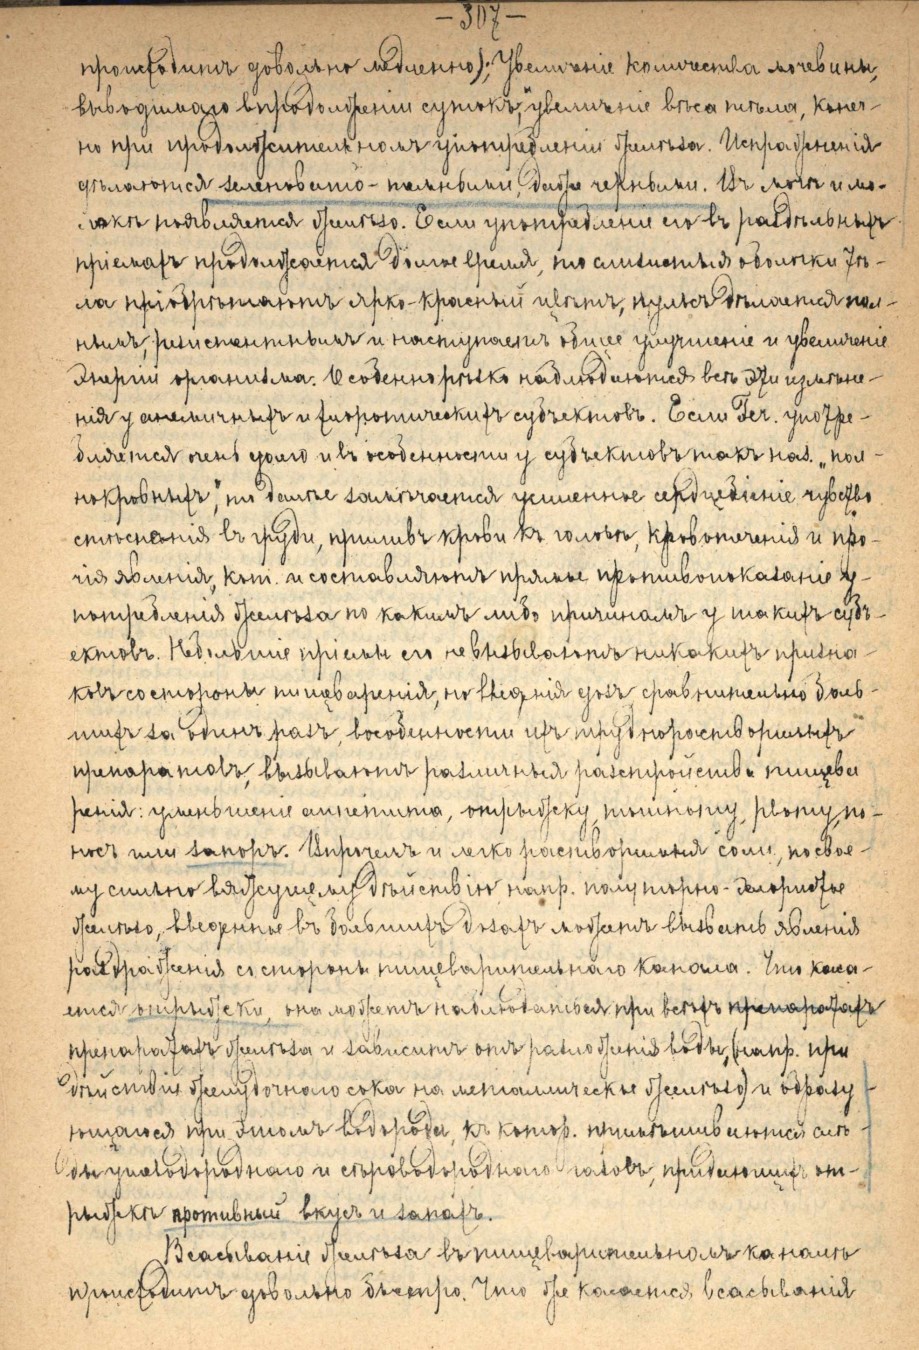 - 307 -
происходитъ довольно медленно); Увеличеніе количества мочевины,
выводимаго впродолженіи сутокъ, увеличеніе вѣса тѣла, конеч-
но при продолжительномъ употребленіи желѣза. Испражненія
дѣлаются зеленовато-темными, даже черными. Въ мочѣ и мо-
локѣ появляется желѣзо. Если употребленіе его въ раздѣльныхъ
пріемахъ продолжается долгое время, то слизистыя оболочки тѣ-
ла пріобрѣтаютъ ярко-красный цвѣтъ, пульсъ дѣлается пол-
нымъ, резистентнымъ и наступаетъ общее улучшеніе и увеличеніе
энергіи организма. Особенно рѣзко наблюдаются всѣ эти измѣне-
нія у анемичныхъ и хлоротическихъ субъектовъ. Если Fer. употре-
бляется очень долго и въ особенности у субъектовъ такъ наз. „пол-
нокровныхъ", то далѣе замѣчается усиленное сердцебіеніе чувство
стѣсненія въ груди, приливъ крови къ головѣ, кровотеченія и про-
чія явленія, кот. и составляютъ прямое противопоказаніе у-
потребленія желѣза по какимъ либо причинамъ у такихъ субъ-
ектовъ. Небольшіе пріемы его не вызываютъ никакихъ призна-
ковъ со стороны пищеваренія, но введенія дозъ сравнительно боль-
шихъ за одинъ разъ, въ особенности ихъ труднорастворимыхъ
препаратовъ, вызываютъ различныя разстройства пищева
ренія: уменьшеніе аппетита, отрыжку, тошноту, рвоту, по-
носъ или запоръ. Впрочемъ и легко растворимыя соли, по свое-
му сильно вяжущему дѣйствію напр. полуторно-хлористое
желѣзо, введенное въ большихъ дозахъ можетъ вызвать явленія
раздраженія со стороны пищеварительнаго канала. Что каса-
ется отрыжки, она можетъ наблюдаться при всѣхъ препаратахъ
препаратахъ желѣза и зависитъ отъ разложенія воды, (напр. при
дѣйствіи желудочнаго сока на металлическое желѣзо) и образу-
ющагося при этомъ водорода, къ котор. примѣшиваются слѣ-
ды углеводороднаго и сѣроводороднаго газовъ, придающихъ от-
рыжкѣ противный вкусъ и запахъ.
Всасываніе желѣза въ пищеварительномъ каналѣ
происходитъ довольно быстро. Что же касается всасыванія